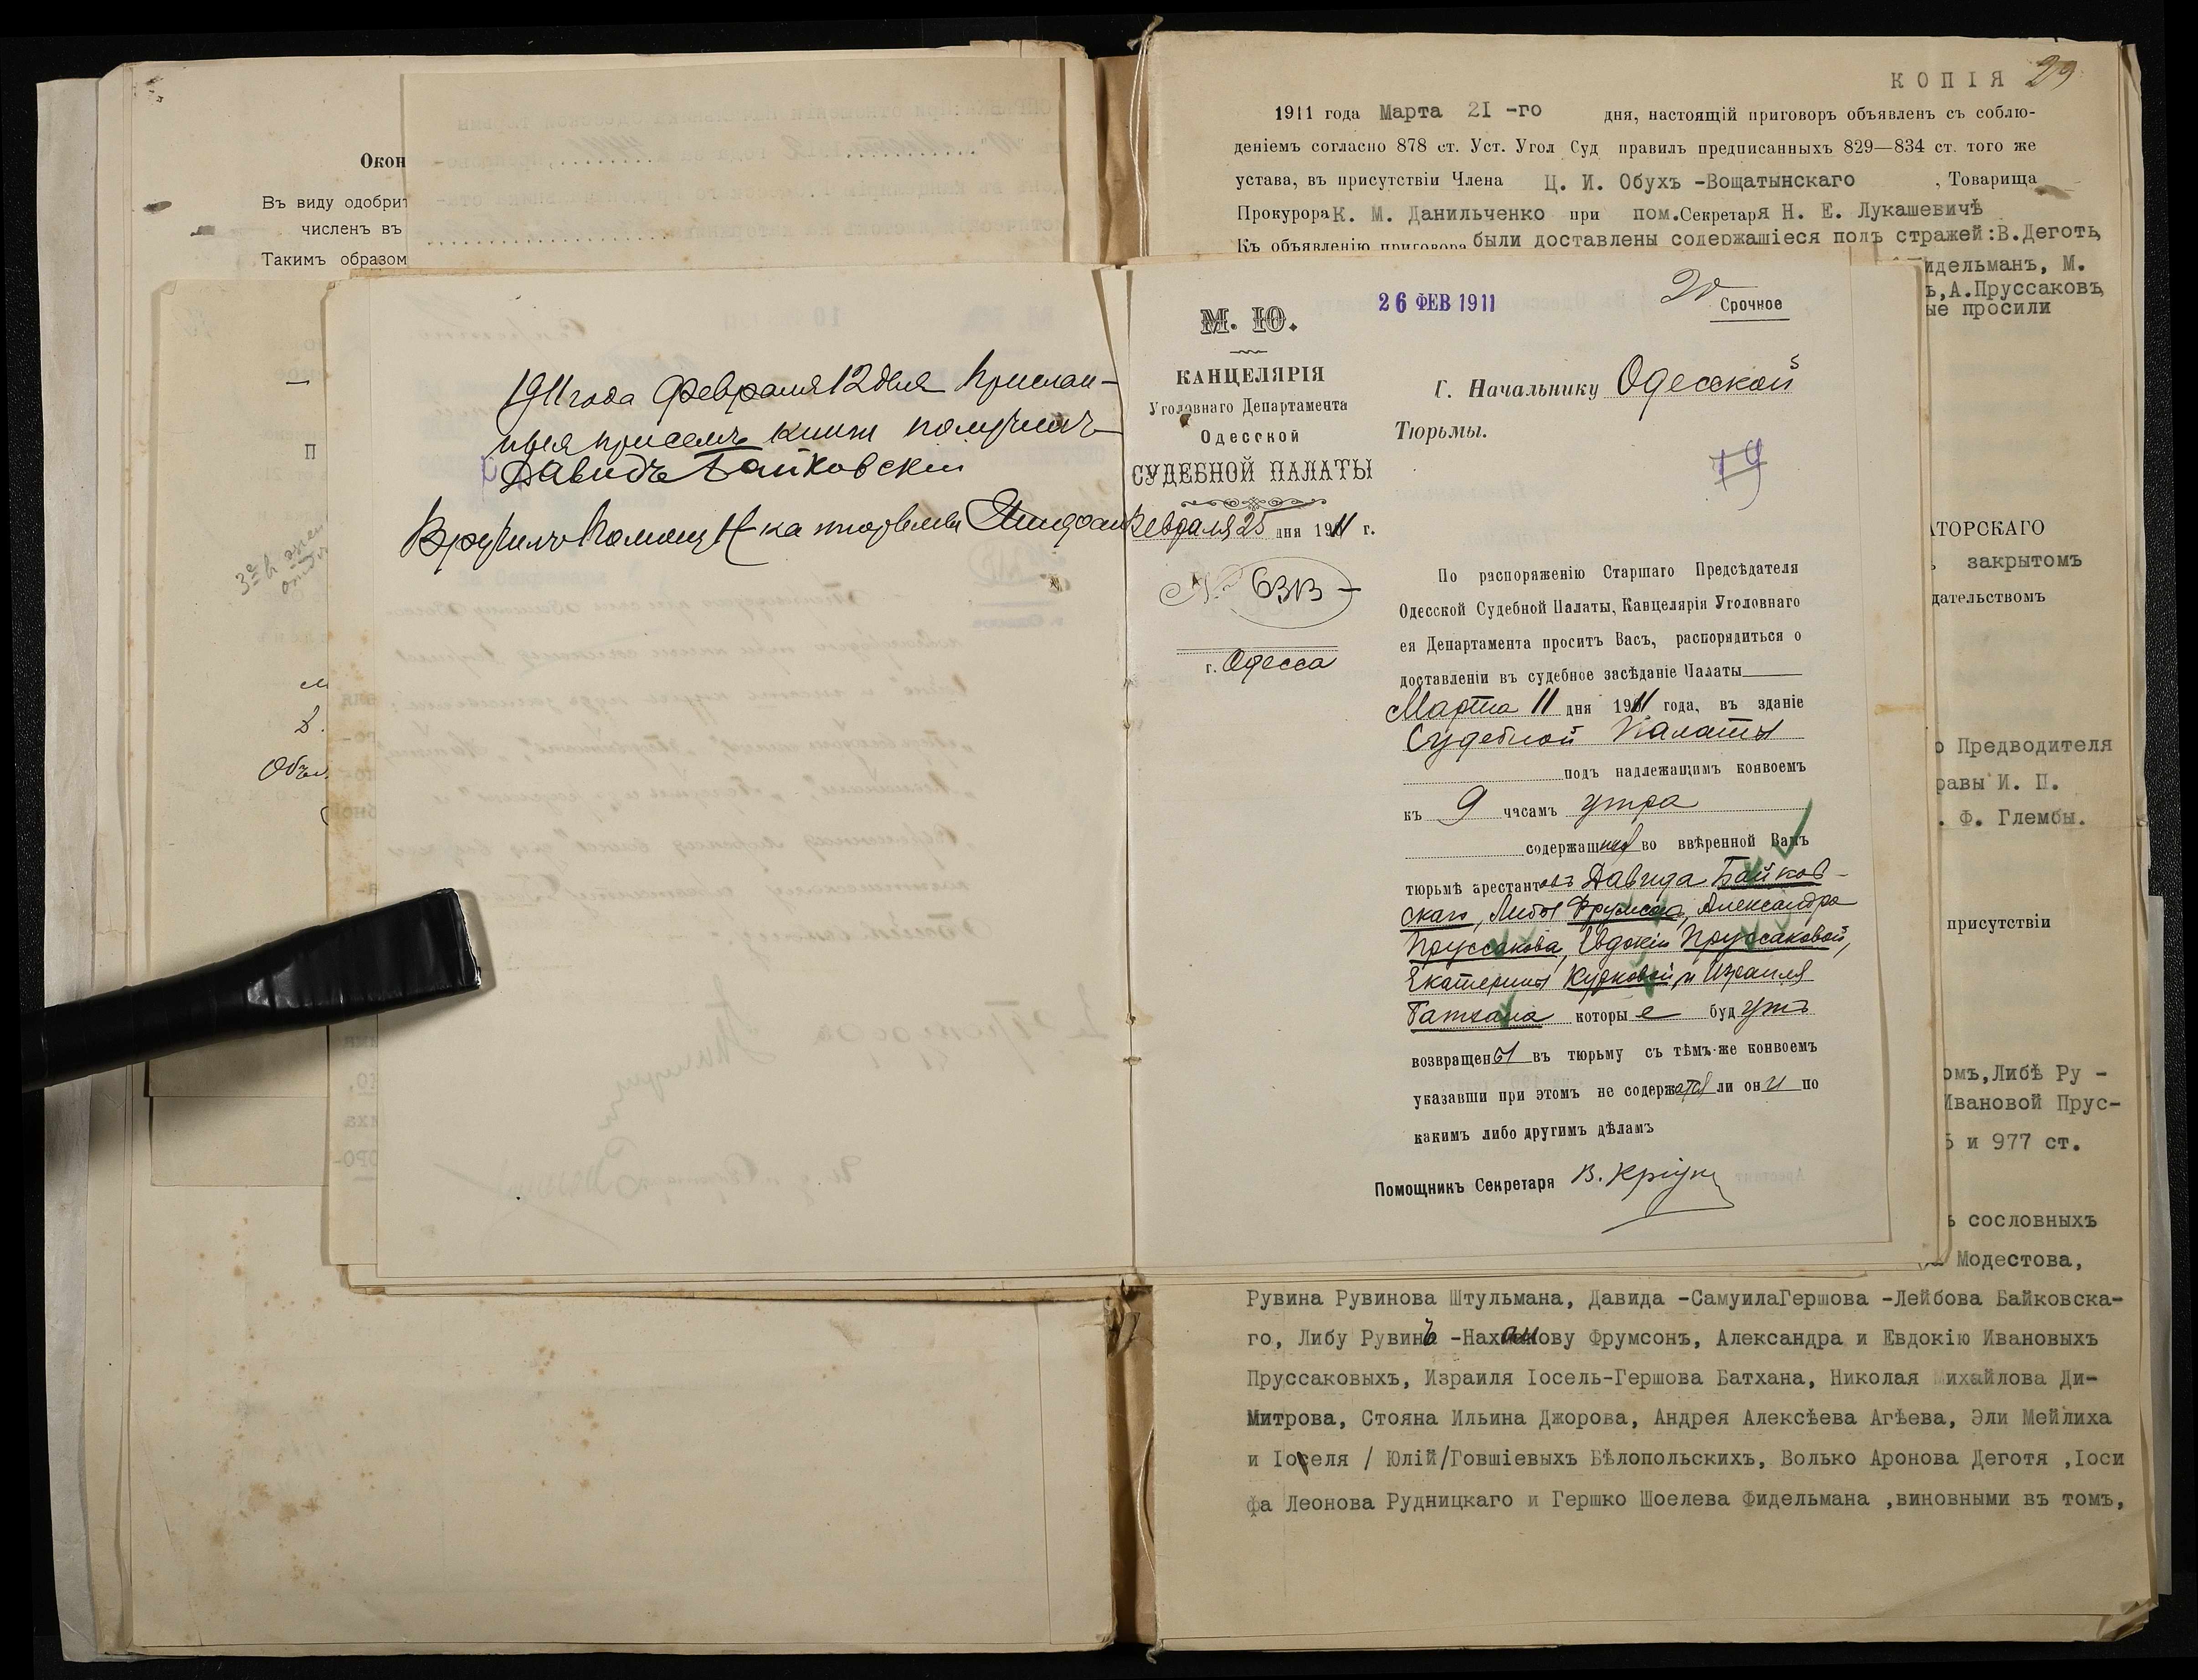 Окон
Въ виду одобрит
численъ въ
Такимъ образом
П
Объя
1911 года Февраля 12 дня Прислан-
ныя при семъ книги получилъ
Давидъ Байковскій
Вручилъ Помощ Н-ка тюрьмы
КОПІЯ 29
1911 года Марта 21 -го дня, настоящій приговоръ объявленъ съ соблю-
деніемъ согласно 878 ст. Уст. Угол Суд правилъ предписанныхъ 829—834 ст. того же
устава, въ присутствіи Члена Ц. И. Обухъ -Вощатынскаго , Товарища
Прокурора К. М. Данильченко при пом.Секретаря Н. Е. Лукашевичѣ
Къ объявленію приговора были доставлены содержащіеся подъ стражей:В.Деготь,
идельманъ, М.
ъ,А.Пруссаковъ,
ые просили
26 ФЕВ 1911
20
Срочное
М. Ю.
КАНЦЕЛЯРІЯ
Уголовнаго Департамента
Одесской
СУДЕБНОЙ ПАЛАТЫ
Февраля 25 дня 1911 г.
№ 6313
г. Одесса
Г. Начальнику Одесской
Тюрьмы.
По распоряженію Старшаго Предсѣдателя
Одесской Судебной Палаты, Канцелярія Уголовнаго
ея Департамента проситъ Васъ, распорядиться о
доставленіи въ судебное засѣданіе Палаты
Марта 11 дня 1911 года, въ зданіе
Судебной Палаты
подъ надлежащимъ конвоемъ
къ 9 часамъ утра
содержащихся во ввѣренной Вамъ
тюрьмѣ арестантовъ Давида Байков-
скаго, Либы Фрумсонъ, Александра
Пруссакова, Евдокіи Пруссаковой,
Екатерины Курковой и Израиля
Батхана которые будутъ
возвращены въ тюрьму съ тѣмъ-же конвоемъ
указавши при этомъ не содержатся ли они по
какимъ либо другимъ дѣламъ
Помощникъ Секретаря
АТОРСКАГО
закрытомъ
дательствомъ
о Предводителя
равы И. П.
. Ф. Глембы.
присутствіи
омъ,Либѣ Ру -
Ивановой Прус-
5 и 977 ст.
ъ сословныхъ
Модестова,
Рувина Рувинова Штульмана, Давида -СамуилаГершова -Лейбова Байковска-
го, Либу Рувинъ -Нахманову Фрумсонъ, Александра и Евдокію Ивановыхъ
Пруссаковыхъ, Израиля Іосель-Гершова Батхана, Николая Михайлова Ди-
Митрова, Стояна Ильина Джорова, Андрея Алексѣева Агѣева, Эли Мейлиха
и Іоселя / Юлій/Говшіевыхъ Бѣлопольскихъ, Волько Аронова Деготя ,Іоси
фа Леонова Рудницкаго и Гершко Шоелева Фидельмана ,виновными въ томъ,